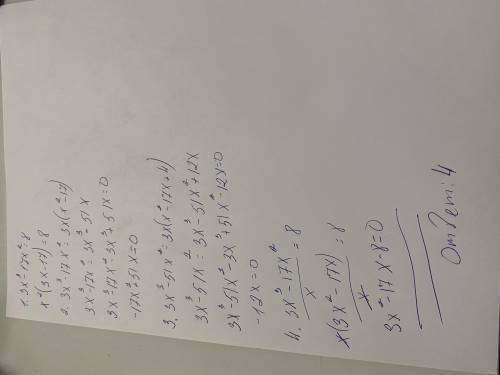 1. 3x³-17x²=8
x²(3x-17)=8
2. 3x³-17x²=3x(x²-17)
3x³-17x²=3x³-51x
3x³-17x²-3x³+51x=0
-17x²+51x=0
3. 3x³-51x²=3x(x²-17x+4)
3x³-51x²=3x³-51x²+12x
3x³-51x²-3x³+51x²-12x=0
-12x=0
4. 3x³-17x²/x=8
x(3x²-17x)/x=8
3x²-17x-8=0
Ответ: 4